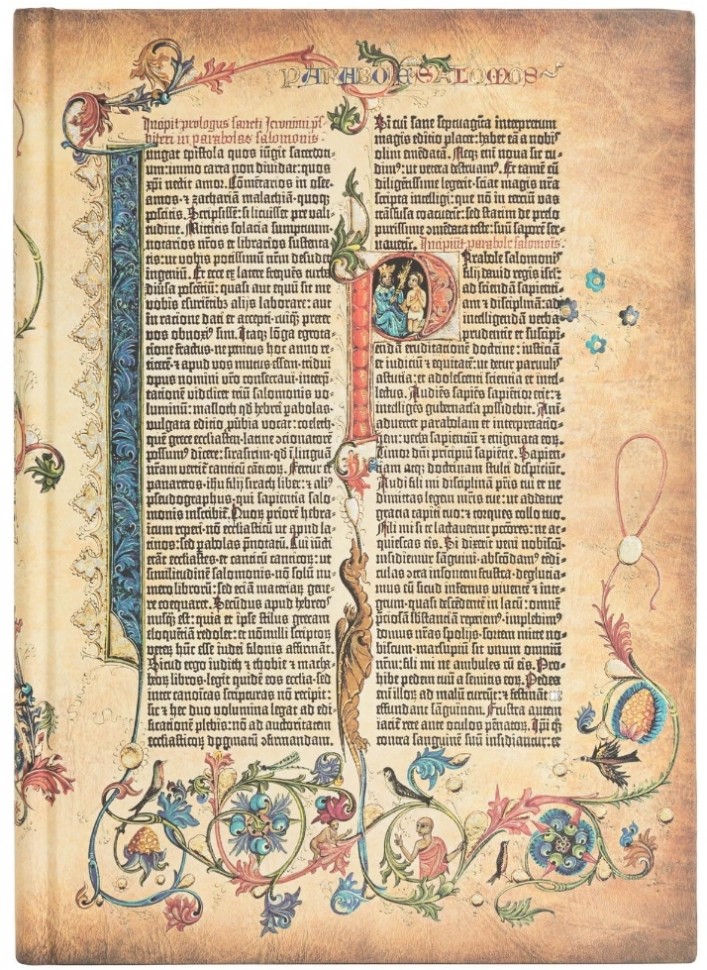 PARABOLE SALOMOIS
Incipit prologus sancti Jeronimi p̄s-
biteri in parabolas salomonis.
iungat epistola quos iūgit sacerdoti-
um: immo carta non dividat: quos
xp̄i nectit amor. Cōmētarios in osee-
amos· ⁊ zachariā malachiā· quoq;
poscitis. Scripsissē: si licuisset pre vali-
tudine. Mittitis solacia sumptuum·
notarios nr̄os et librarios sustenta-
tis: ut vobis potissimū nr̄m desudet
ingeniū. Et ecce ex latere freques turba
diūsa poscētiū: quasi aut equū sit me
vobis esurietib; alijs laborare: aut
in ratione dati et accepti· cuiq; preter
vos obnoxi⁹ sim. Itaq; lōga egrota-
tione fractus· ne penitus hoc anno re-
ticerē· ⁊ apud vos mutus essem· tridui
opus nomini vr̄o consecravi· interp̄-
tationē videlicet triū salomonis vo-
luminū: masloth qd̄ hebrei pabolas·
vulgata editio pūbia vocat: coeleth·
quē grece ecclesiasten· latine ɔcionatorē
possum⁹ dicere: sirasirim· qd̄ ī linguā
nr̄am vertit̄ canticū cāticoꝝ. Fertur et
panaretos· ihū filij sirach liber: ⁊ ali⁹
pseudographus· qui sapientia salo-
monis inscribit̄. Quoꝝ priorē hebra-
icum reperi· nō ecclesiasticū ut apud la-
tinos: sed pabolas p̄notatū. Cui iūcti
erāt ecclesiastes· et canticū canticoꝝ: ut
similitudinē salomonis· nō solū nu-
mero libroruū: sed etiā materiaꝝ gene-
re coequaret. Secūdus apud hebreos
nusq̄ est: quia et ipse stilus grecam
eloquētiā redolet: et nōnulli scriptoꝝ
veteꝝ hūc esse iudei filonis affirmāt.
Sicud ergo iudith ⁊ thobie ⁊ macha-
beoꝝ libros· legit quidē eos ecclia· sed
inter canoicas scripturas nō recipit:
sic ⁊ hec duo volumina legat ad edi-
ficationē plebis: nō ad auctoritatem
ecclesiasticoꝝ dogmatū ɔfirmandam.
Si cui sane septuaginta interpretum
magis editio placet: habet eā a nobis
olim emēdatā. Neq; enī nova sic cu-
dim⁹: ut vetera destruam⁹. Et tamē cū
diligētissime legerit· sciat magis nr̄a
scripta intelligi: que nō in terciū vas
trāsfusa coacuerīt: sed statim de prelo
purissime ɔmēdata teste: suū saporē ser-
vaverīt. Incipiūt parabole salomonis.
Parabole salomonis
filij david regis isrl̄:
ad sciendā sapienti-
am ⁊ disciplinā: ad
intelligendā verba
prudentie et suscipi-
endā eruditationē doctrine: iusticiā
et iudiciū ⁊ equitatē: ut detur parvulis
astutia: et adolescenti scientia et intel-
lectus. Audiēs sapiēs sapiētior erit: ⁊
intelligēs gubernacla possidebit. Ani-
advertet parabolam et interpretatio-
nem: verba sapientiū ⁊ enigmata eoꝝ.
Timor dn̄i principiū sapiētie. Sapien-
tiam atq; doctrinam stulti despiciūt.
Audi fili mi disciplinā pr̄is tui et ne
dimittas legem mr̄is tue: ut addatur
gracia capiti tuo: ⁊ torques collo tuo.
Fili mi si te lactaverint pctōres: ne ac-
quiescas eis. Si dixerīt veni nobiscū·
insidiemur sāguini· abscōdam⁹ tendi-
culas ɔtra insontem frustra· degluctia-
mus eū sicud infernus viventē ⁊ inte-
grum· quasi descēdentē in lacū: omnē
p̄ciosā sbstanciā reperiem⁹· implebim⁹
domus nr̄as spolijs· sortem mitte no-
biscum· marsupiū sit unum omniū
nr̄m: fili mi ne ambules cū eis. Pro-
hibe pedem tuū a semitis eoꝝ. Pedes
enī illoꝝ ad malū currūt: ⁊ festināt
effundant sāguinem. Frustra autem
iacit̄ rete ante oculos pēnatoꝝ. Ipi q̄q;
contra sanguinē suū insidiantur: et